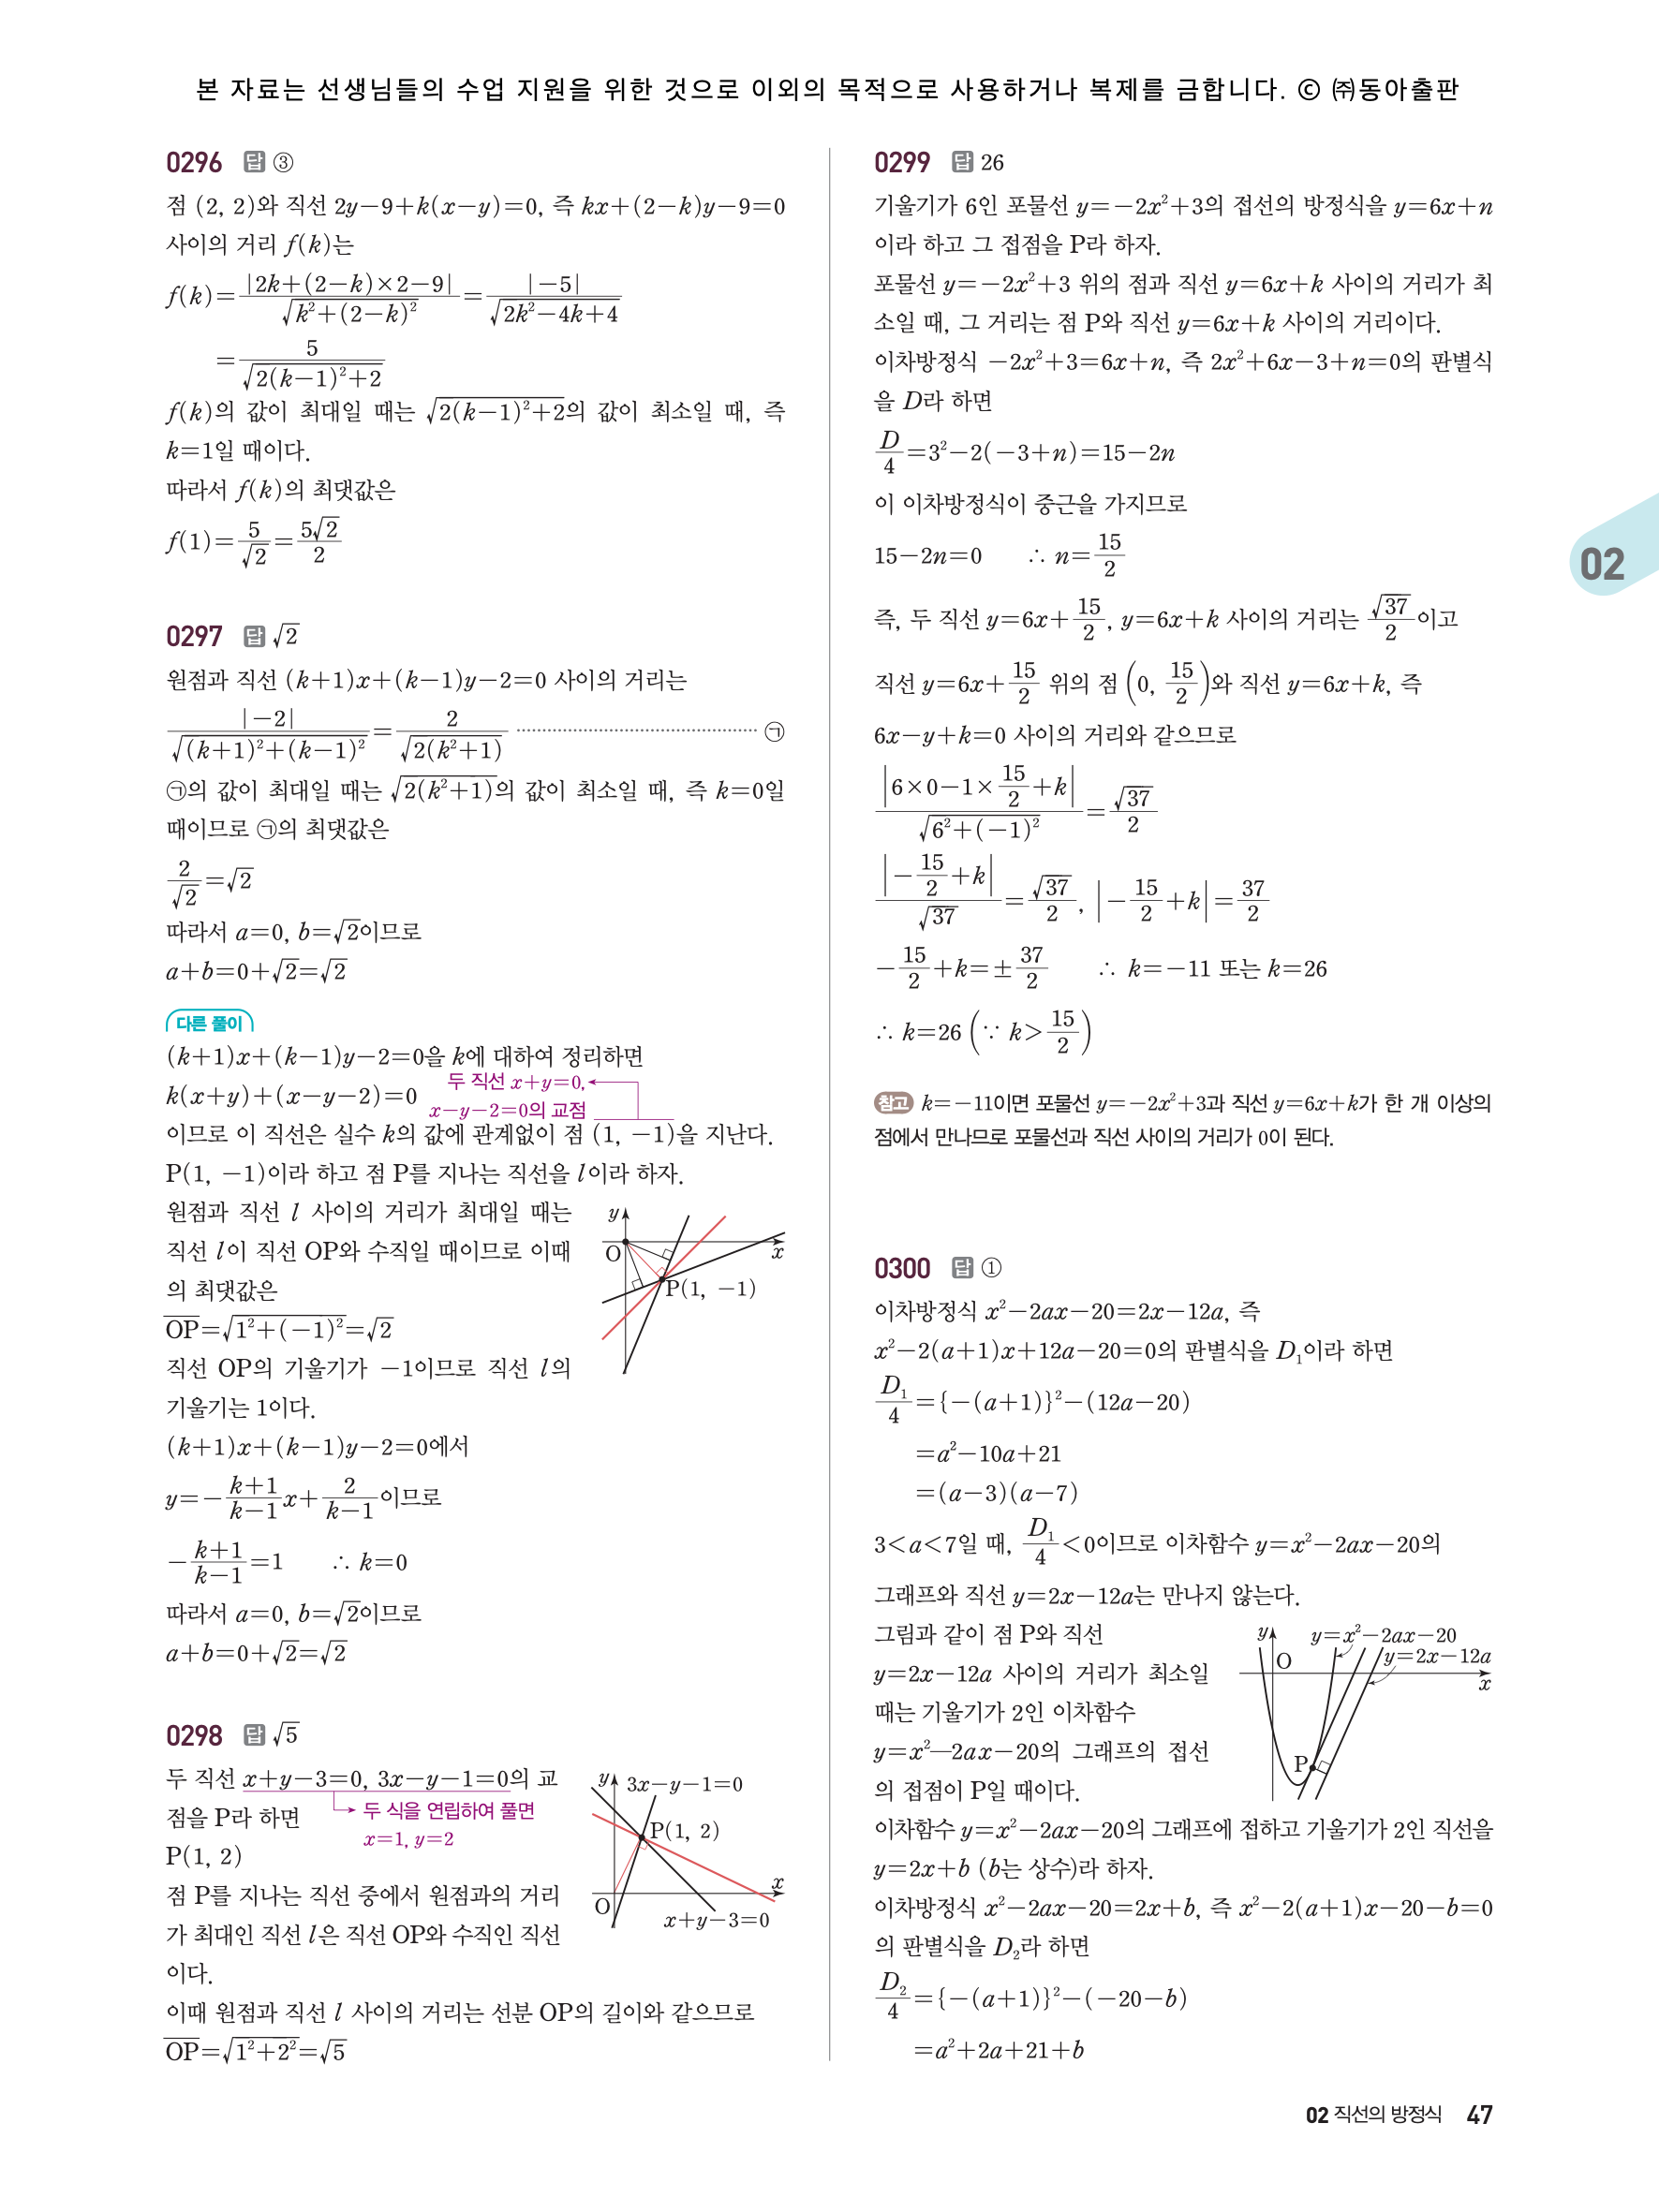 본 자료는 선생님들의 수업 지원을 위한 것으로 이외의 목적으로 사용하거나 복제를 금합니다. ⓒ ㈜동아출판
0296 답 ③
점 (2, 2)와 직선 2y-9+k(x-y)=0, 즉 kx+(2-k)y-9=0
사이의 거리 f(k)는
f(k)=|2k+(2-k)×2-9|/√(k²+(2-k)²)=|-5|/√(2k²-4k+4)
=5/√(2(k-1)²+2)
f(k)의 값이 최대일 때는 √(2(k-1)²+2)의 값이 최소일 때, 즉
k=1일 때이다.
따라서 f(k)의 최댓값은
f(1)=5/√2=5√2/2
0297 답 √2
원점과 직선 (k+1)x+(k-1)y-2=0 사이의 거리는
|-2|/√((k+1)²+(k-1)²)=2/√(2(k²+1)) ······ ㉠
㉠의 값이 최대일 때는 √(2(k²+1))의 값이 최소일 때, 즉 k=0일
때이므로 ㉠의 최댓값은
2/√2=√2
따라서 a=0, b=√2이므로
a+b=0+√2=√2
다른 풀이
(k+1)x+(k-1)y-2=0을 k에 대하여 정리하면
k(x+y)+(x-y-2)=0
두 직선 x+y=0,
x-y-2=0의 교점
이므로 이 직선은 실수 k의 값에 관계없이 점 (1, -1)을 지난다.
P(1, -1)이라 하고 점 P를 지나는 직선을 l이라 하자.
원점과 직선 l 사이의 거리가 최대일 때는
직선 l이 직선 OP와 수직일 때이므로 이때
의 최댓값은
OP=√(1²+(-1)²)=√2
직선 OP의 기울기가 -1이므로 직선 l의
기울기는 1이다.
y
O
x
P(1, -1)
(k+1)x+(k-1)y-2=0에서
y=-(k+1)/(k-1)x+2/(k-1)이므로
-(k+1)/(k-1)=1 ∴ k=0
따라서 a=0, b=√2이므로
a+b=0+√2=√2
0298 답 √5
두 직선 x+y-3=0, 3x-y-1=0의 교
점을 P라 하면
두 식을 연립하여 풀면
x=1, y=2
P(1, 2)
점 P를 지나는 직선 중에서 원점과의 거리
가 최대인 직선 l은 직선 OP와 수직인 직선
이다.
y
3x-y-1=0
P(1, 2)
x
O
x+y-3=0
이때 원점과 직선 l 사이의 거리는 선분 OP의 길이와 같으므로
OP=√(1²+2²)=√5
0299 답 26
기울기가 6인 포물선 y=-2x²+3의 접선의 방정식을 y=6x+n
이라 하고 그 접점을 P라 하자.
포물선 y=-2x²+3 위의 점과 직선 y=6x+k 사이의 거리가 최
소일 때, 그 거리는 점 P와 직선 y=6x+k 사이의 거리이다.
이차방정식 -2x²+3=6x+n, 즉 2x²+6x-3+n=0의 판별식
을 D라 하면
D/4=3²-2(-3+n)=15-2n
이 이차방정식이 중근을 가지므로
15-2n=0 ∴ n=15/2
즉, 두 직선 y=6x+15/2, y=6x+k 사이의 거리는 √37/2이고
직선 y=6x+15/2 위의 점 (0, 15/2)와 직선 y=6x+k, 즉
6x-y+k=0 사이의 거리와 같으므로
|6×0-1×15/2+k|/√(6²+(-1)²)=√37/2
|-15/2+k|/√37=√37/2, |-15/2+k|=37/2
-15/2+k=±37/2 ∴ k=-11 또는 k=26
∴ k=26 (∵ k>15/2)
참고 k=-11이면 포물선 y=-2x²+3과 직선 y=6x+k가 한 개 이상의
점에서 만나므로 포물선과 직선 사이의 거리가 0이 된다.
0300 답 ①
이차방정식 x²-2ax-20=2x-12a, 즉
x²-2(a+1)x+12a-20=0의 판별식을 D₁이라 하면
D₁/4={-(a+1)}²-(12a-20)
=a²-10a+21
=(a-3)(a-7)
3<a<7일 때, D₁/4<0이므로 이차함수 y=x²-2ax-20의
그래프와 직선 y=2x-12a는 만나지 않는다.
그림과 같이 점 P와 직선
y=2x-12a 사이의 거리가 최소일
때는 기울기가 2인 이차함수
y=x²-2ax-20의 그래프의 접선
의 접점이 P일 때이다.
y
y=x²-2ax-20
O
y=2x-12a
x
P
이차함수 y=x²-2ax-20의 그래프에 접하고 기울기가 2인 직선을
y=2x+b (b는 상수)라 하자.
이차방정식 x²-2ax-20=2x+b, 즉 x²-2(a+1)x-20-b=0
의 판별식을 D₂라 하면
D₂/4={-(a+1)}²-(-20-b)
=a²+2a+21+b
02
02 직선의 방정식 47